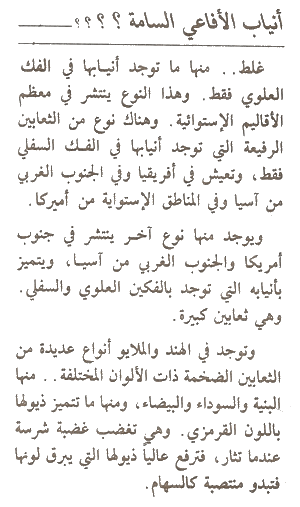 أنياب الأفاعي السامة ؟ ؟ ؟ ؟
غلط.. منها ما توجد أنيابها في الفك
العلوي فقط. وهذا النوع ينتشر في معظم
الأقاليم الإستوائية. وهناك نوع من الثعابين
الرفيعة التي توجد أنيابها في الفك السفلي
فقط، وتعيش في أفريقيا وفي الجنوب الغربي
من آسيا وفي المناطق الإستواية من أميركا.
ويوجد منها نوع آخر ينتشر في جنوب
أمريكا والجنوب الغربي من آسيا، ويتميز
بأنيابه التي توجد بالفكين العلوي والسفلي.
وهي ثعابين كبيرة.
وتوجد في الهند والملايو أنواع عديدة من
الثعابين الضخمة ذات الألوان المختلفة.. منها
البنية والسوداء والبيضاء، ومنها ما تتميز ذيولها
باللون القرمزي. وهي تغضب غضبة شرسة
عندما تثار، فترفع عالياً ذيولها التي يبرق لونها
فتبدو منتصبة كالسهام.